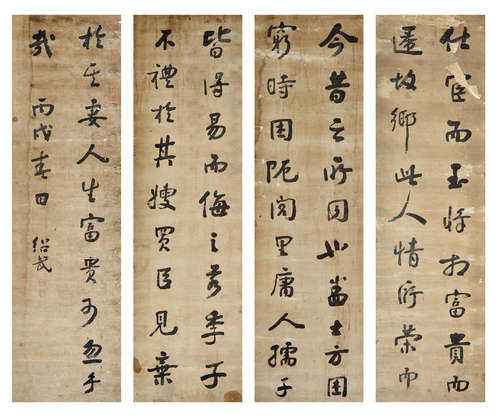 仕宦而至将相富貴而
還故鄉此人情所榮而
今昔之所同也蓋士方困
窮時困阨閭里庸人孺子
皆得易而侮之若季子
不禮於其嫂買臣見棄
於其妻人生富貴可忽乎
哉 丙戌春日 紹